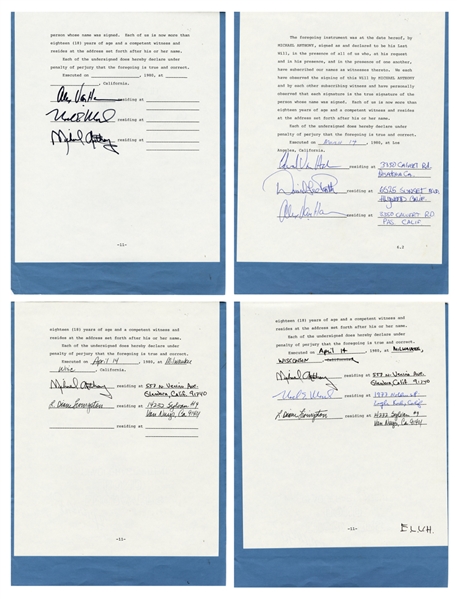 person whose name was signed. Each of us is now more
eighteen (18) years of age and a competent witness and
resides at the address set forth after his or her name.
Each of the undersigned does hereby declare under
penalty of perjury that the foregoing is true and correct.
Executed on , 1980, at
, California.
residing at
residing at
residing at
-11-
The foregoing instrument was at the date hereof, by
MICHAEL ANTHONY, signed as and declared to be his last
Will, in the presence of all of us who, at his request
and in his presence, and in the presence of one another,
have subscribed our names as witnesses thereto. We each
have observed the signing of this Will by MICHAEL ANTHONY
and by each other subscribing witness and have personally
observed that each signature is the true signature of the
person whose name was signed. Each of us is now more than
eighteen (18) years of age and a competent witness and
resides at the address set forth after his or her name.
Each of the undersigned does hereby declare under
penalty of perjury that the foregoing is true and correct.
Executed on March 19, 1980, at Los
Angeles, California.
residing at 3350 Calvert Rd
Pasadena Ca.
residing at Sunset
residing at 3350 Calvert Rd
Pas Calif
eighteen (18) years of age and a competent witness and
resides at the address set forth after his or her name.
Each of the undersigned does hereby declare under
penalty of perjury that the foregoing is true and correct.
Executed on April 14, 1980, at Milwaukee
, California.
Michael Anthony residing at 577 W. Venice Ave.
Glendora, Calif. 91740
residing at 14232 Sylvan #4
Van Nuys, Ca 91401
residing at
-11-
eighteen (18) years of age and a competent witness and
resides at the address set forth after his or her name.
Each of the undersigned does hereby declare under
penalty of perjury that the foregoing is true and correct.
Executed on April 14, 1980, at Milwaukee,
Wisconsin
Michael Anthony residing at 577 W. Venice Ave.
Glendora, Calif. 91740
residing at
residing at 14232 Sylvan #4
Van Nuys, Ca 91401
-11-
E.L.V.H.